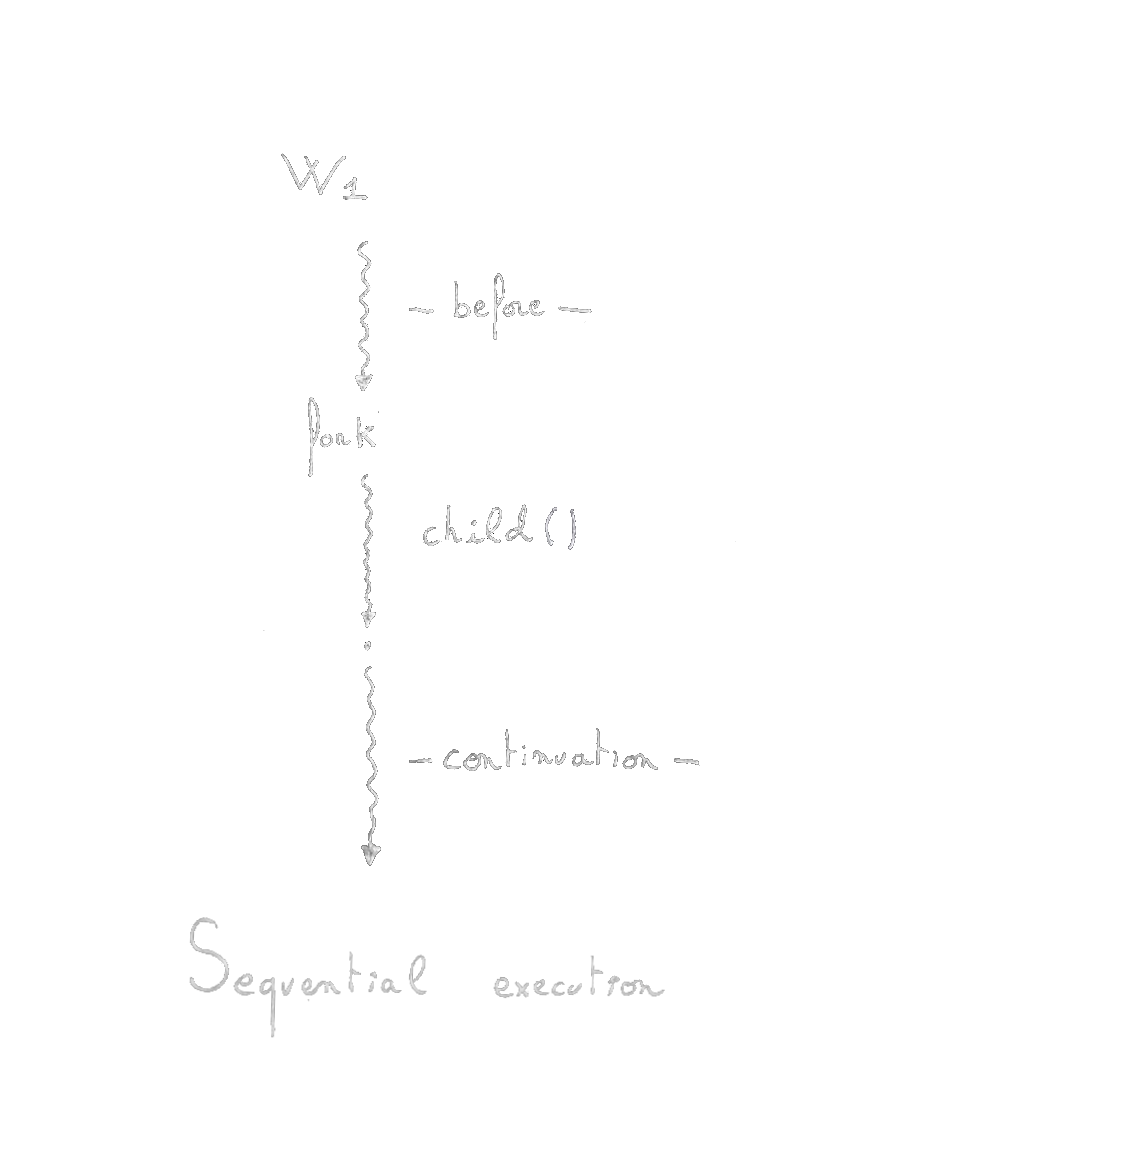 W1
- before -
fork
child()
- continuation -
Sequential execution